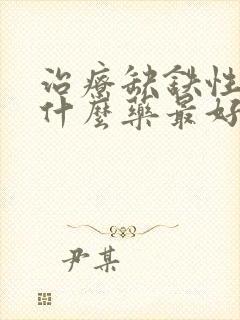 治療缺鉄性
什麼藥最好
尹某